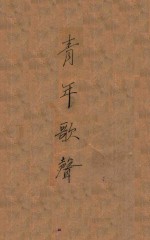 青年歌聲